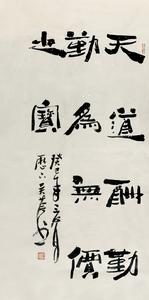 天道酬勤
勤為無價
之寶
癸巳年三月